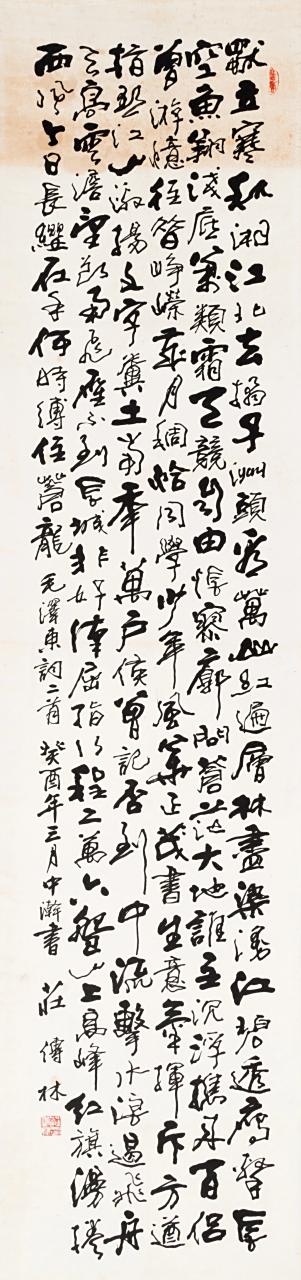 獨立寒秋湘江北去橘子洲頭看萬山紅遍層林盡染漫江碧透鷹擊長
空魚翔淺底萬類霜天競自由悵寥廓問蒼茫大地誰主沉浮攜來百侶
曾游憶往昔崢嶸歲月稠恰同學少年風華正茂書生意氣揮斥方遒
指點江山激揚文字糞土當年萬戶侯曾記否到中流擊水浪遏飛舟
天高雲淡望斷南飛雁不到長城非好漢屈指行程二萬六盤山上高峰紅旗漫捲
西風今日長纓在手何時縛住蒼龍 毛澤東詞二首 癸酉年三月中澣書 莊傳林